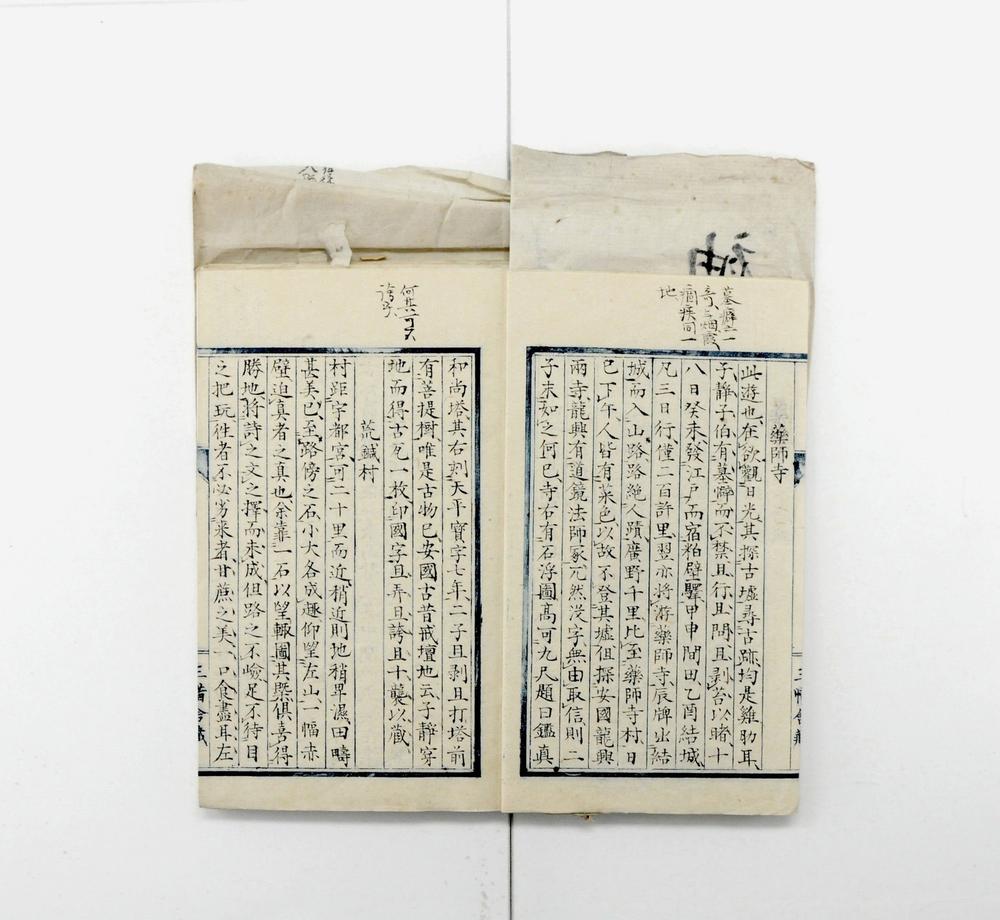 墓癖之一
奇与烟霞
痼疾同一
地
藥師寺
此遊也在欲觀日光其探古墟尋古跡均是雞肋耳
子靜子伯有墓癖而不禁且行且問且剥苔以賭十
八日癸未發江戸而宿粕壁驛甲申間田乙酉結城
凡三日行僅二百許里翌亦將游藥師寺辰牌出結
城而入山路路絶人蹟廣野千里比至藥師寺村日
已下午人皆有菜色以故不登其墟但探安國龍興
兩寺龍興有道鏡法師冢兀然没字無由取信則二
子未如之何已寺右有石浮圖高可九尺題曰鑑真
和尚塔其右刻天平寶字七年二子且剥且打塔前
有菩提樹唯是古物已安國古昔戒壇地云子靜穿
地而得古瓦一枚印國字且弄且誇且十襲以藏
荒鍼村
村距宇都宮可二十里而近稍近則地稍卑濕田疇
甚美已至路傍之石小大各成趣仰望左山一幅赤
壁迫真者之真也余靠一石以望輙圖其槩俱喜得
勝地將詩之文之擇而未成但路之不嶮足不待目
之把玩往者不必劣来者甘蔗之美一口食盡耳左